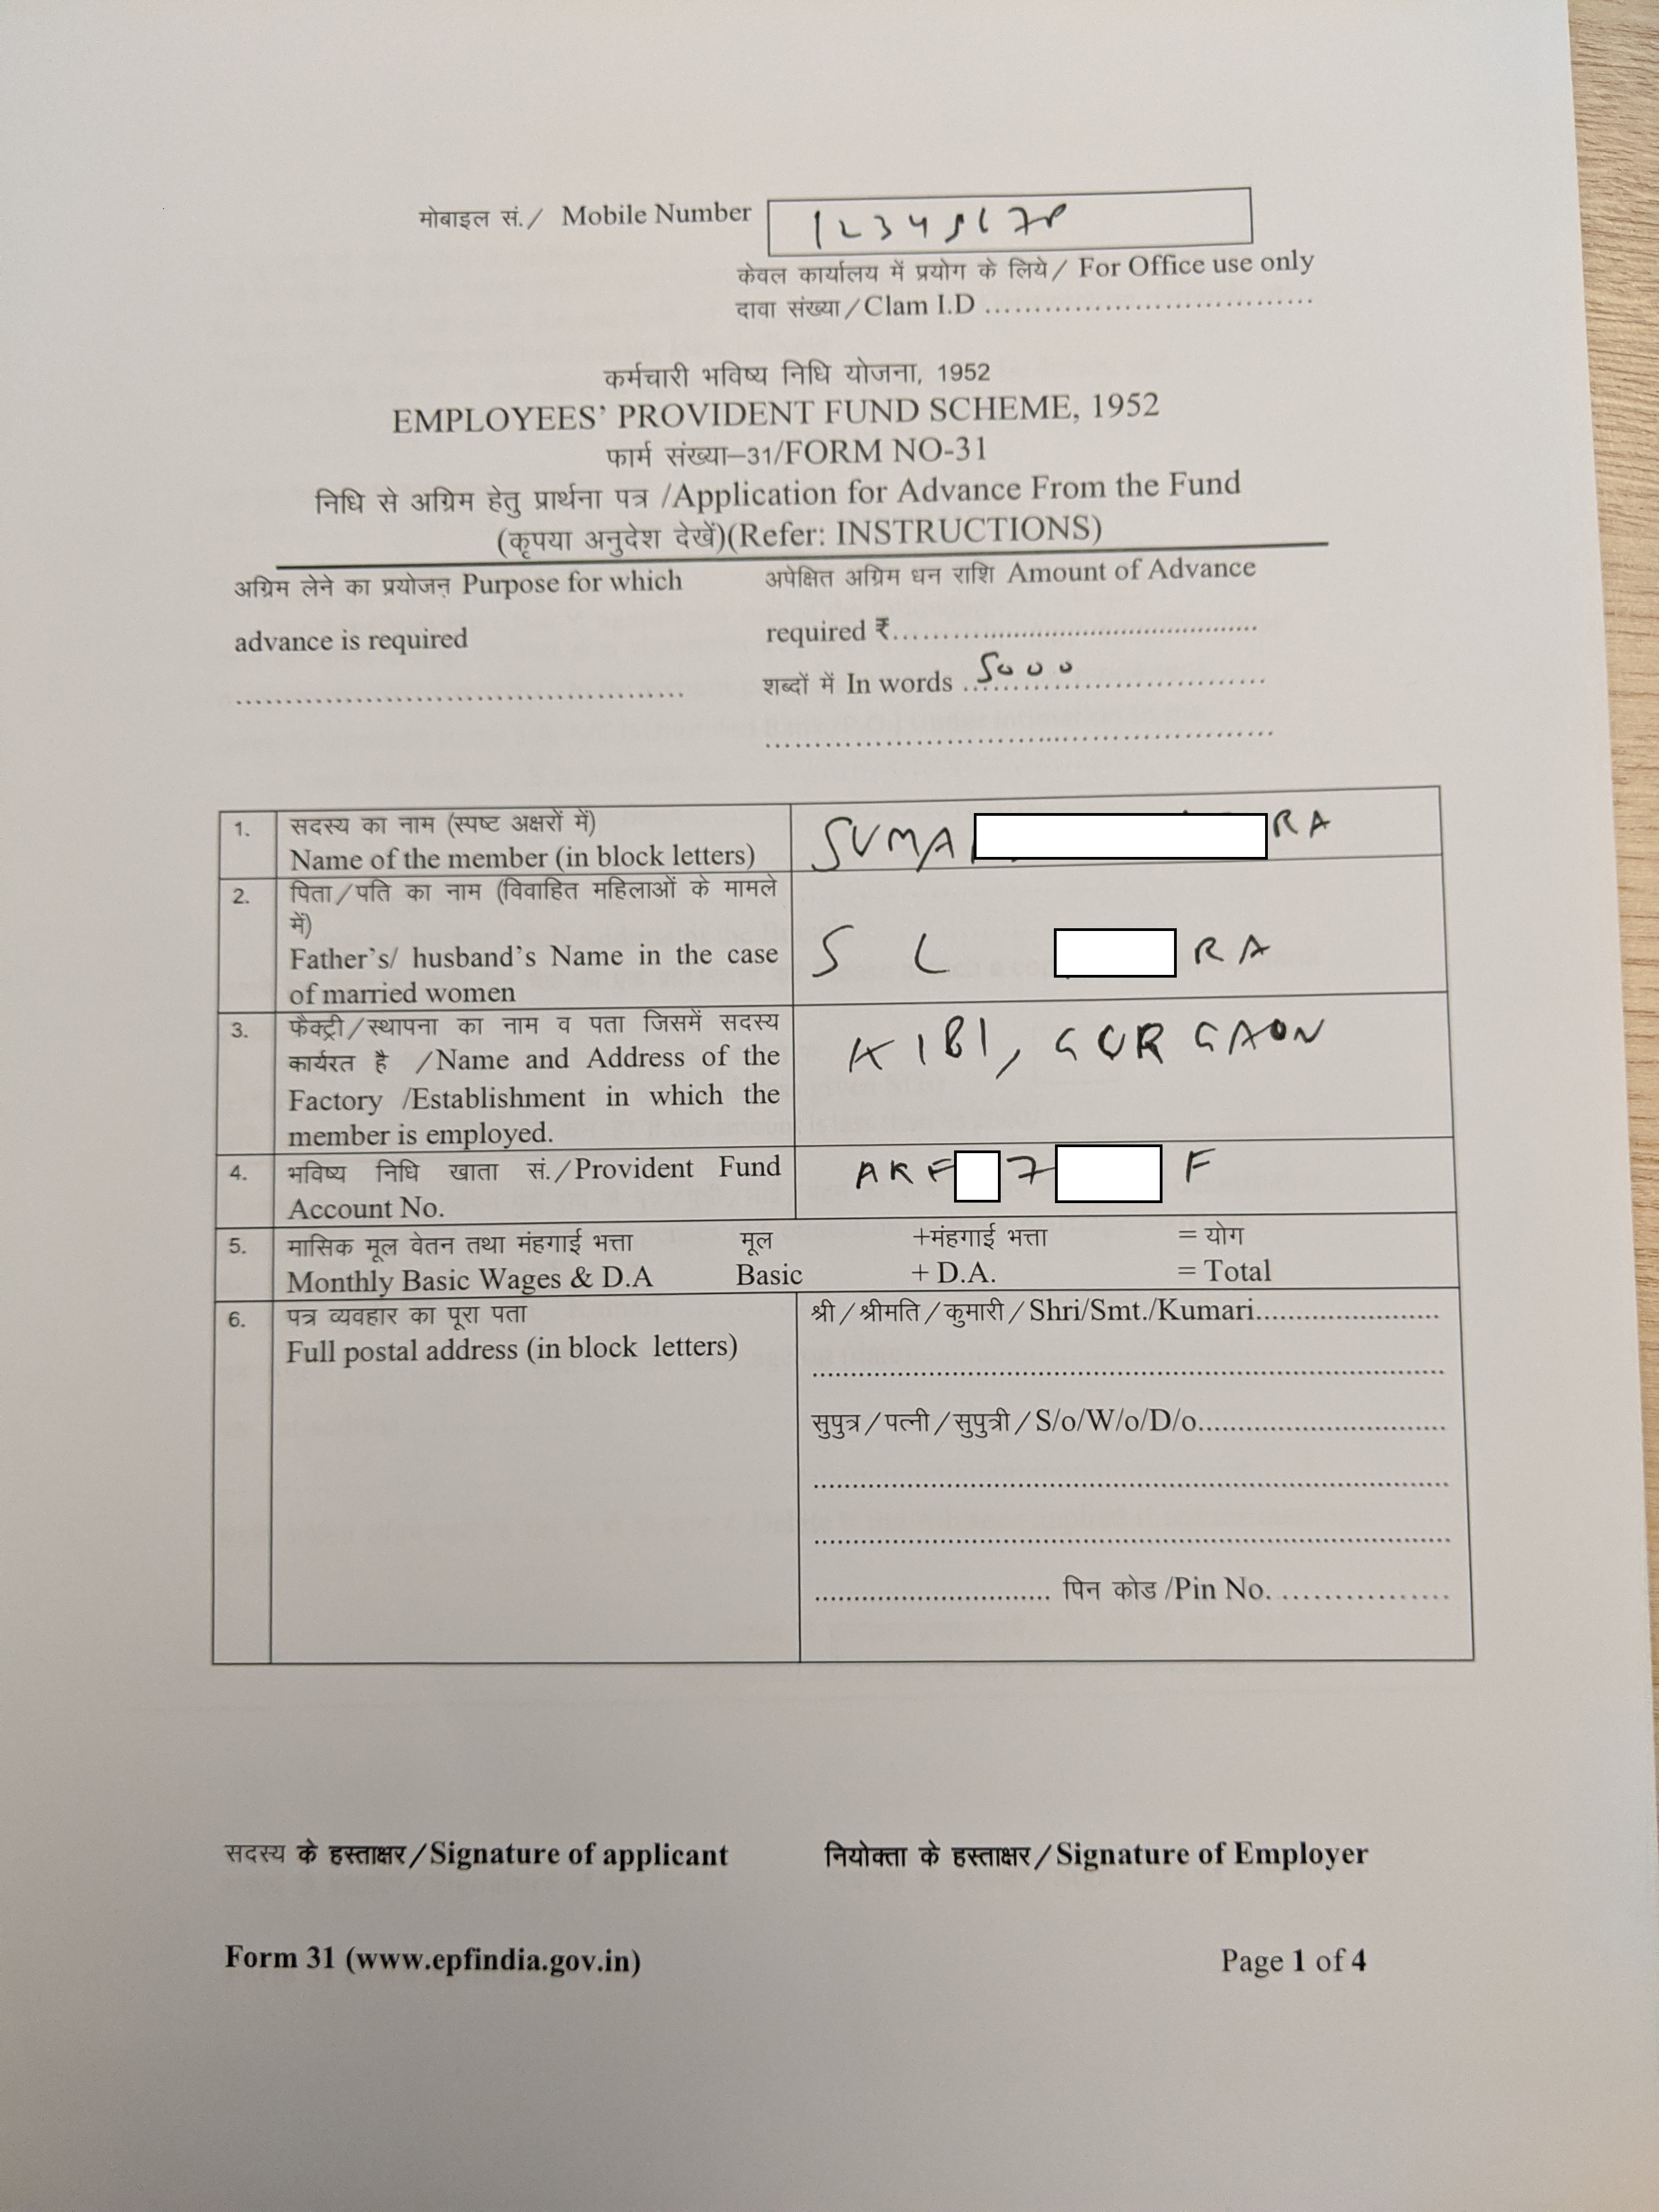 मोबाइल सं./ Mobile Number 12345678
केवल कार्यालय में प्रयोग के लिये/ For Office use only
दावा संख्या/Clam I.D ....................................
कर्मचारी भविष्य निधि योजना, 1952
EMPLOYEES' PROVIDENT FUND SCHEME, 1952
फार्म संख्या–31/FORM NO-31
निधि से अग्रिम हेतु प्रार्थना पत्र /Application for Advance From the Fund
(कृपया अनुदेश देखें)(Refer: INSTRUCTIONS)
अग्रिम लेने का प्रयोजन Purpose for which
advance is required
................................................
अपेक्षित अग्रिम धन राशि Amount of Advance
required ₹................................................
शब्दों में In words 5000
................................................
1. सदस्य का नाम (स्पष्ट अक्षरों में)
Name of the member (in block letters) SUMA RA
2. पिता/पति का नाम (विवाहित महिलाओं के मामले
में)
Father's/ husband's Name in the case
of married women
S L RA
3. फैक्ट्री/स्थापना का नाम व पता जिसमें सदस्य
कार्यरत है /Name and Address of the
Factory /Establishment in which the
member is employed.
KIBI, GURGAON
4. भविष्य निधि खाता सं./Provident Fund
Account No.
AKF 7 F
5. मासिक मूल वेतन तथा मंहगाई भत्ता मूल +मंहगाई भत्ता = योग
Monthly Basic Wages & D.A Basic + D.A. = Total
6. पत्र व्यवहार का पूरा पता
Full postal address (in block letters)
श्री/श्रीमति/कुमारी/Shri/Smt./Kumari........................
................................................
सुपुत्र/पत्नी/सुपुत्री/S/o/W/o/D/o................................
................................................
................................................
................................ पिन कोड /Pin No. ..................
सदस्य के हस्ताक्षर/Signature of applicant नियोक्ता के हस्ताक्षर/Signature of Employer
Form 31 (www.epfindia.gov.in) Page 1 of 4